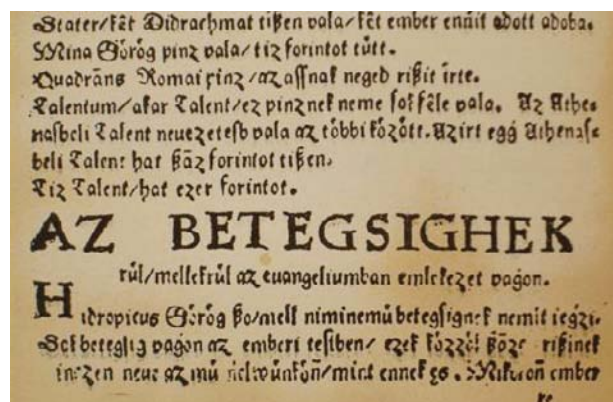 Stater/két Didrachmat tißen vala/két ember ennit adott adoba.
Mina Görög pinz vala/tiz forintot tütt.
Quadrãns Romai pinz/az assnak neged rißit irte.
Talentum/akar Talent/ez pinznek neme sokféle vala. Az Athe⸗
nasbeli Talent neuezetesb vala az többi között. Azirt egǵ Athenase
beli Talent hat ßaz forintot tißen.
Tiz Talent/hat ezer forintot.
AZ BETEGSIGHEK
rül/mellekrül az euangeliumban emlekezet vaǵon.
Hidropicus Görög ßo/mell niminemü betegsignek nemit ieǵzi.
Sok betegsig vaǵon az emberi testben/ ezek közzöl ßöze rißinek
inczen neue az mü nelwünkön/mint ennek es. Mikoron ember
re